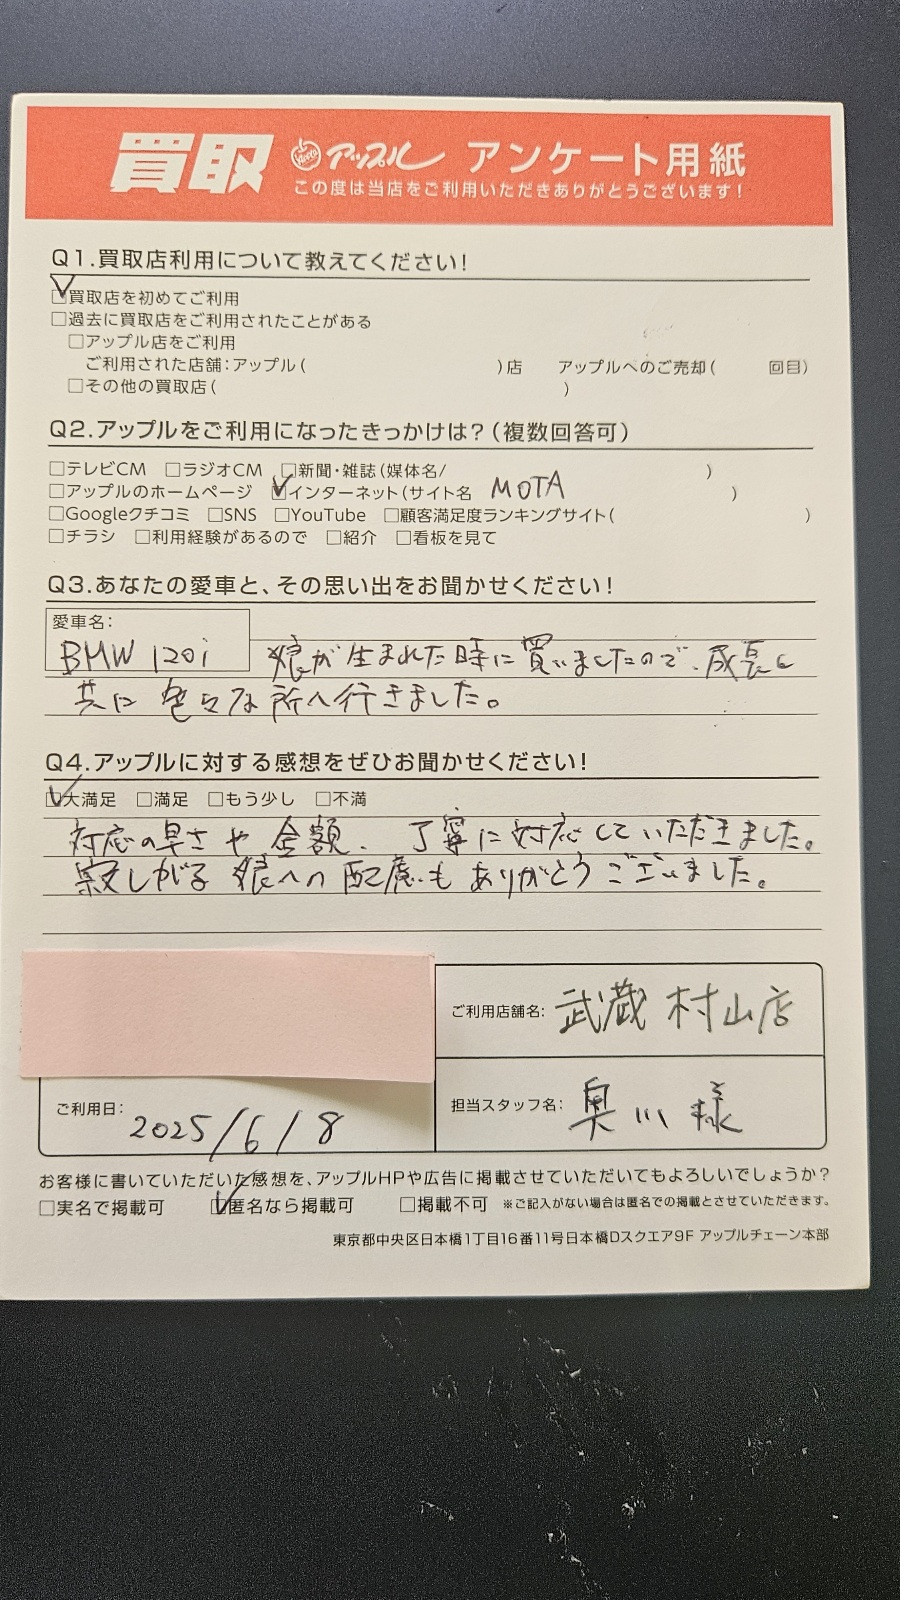 買取 Apple アップル アンケート用紙
この度は当店をご利用いただきありがとうございます!
Q1.買取店利用について教えてください!
☑買取店を初めてご利用
□過去に買取店をご利用されたことがある
□アップル店をご利用
ご利用された店舗:アップル( )店 アップルへのご売却( 回目)
□その他の買取店( )
Q2.アップルをご利用になったきっかけは?(複数回答可)
□テレビCM □ラジオCM □新聞・雑誌(媒体名/ )
□アップルのホームページ ☑インターネット(サイト名 MOTA )
□Googleクチコミ □SNS □YouTube □顧客満足度ランキングサイト( )
□チラシ □利用経験があるので □紹介 □看板を見て
Q3.あなたの愛車と、その思い出をお聞かせください!
愛車名:
BMW 120i 娘が生まれた時に買いましたので、成長と
共に色々な所へ行きました。
Q4.アップルに対する感想をぜひお聞かせください!
☑大満足 □満足 □もう少し □不満
対応の早さや金額、丁寧に対応していただきました。
寂しがる娘への配慮もありがとうございました。
ご利用店舗名: 武蔵村山店
ご利用日: 2025/6/8
担当スタッフ名: 奥川様
お客様に書いていただいた感想を、アップルHPや広告に掲載させていただいてもよろしいでしょうか?
□実名で掲載可 ☑匿名なら掲載可 □掲載不可 ※ご記入がない場合は匿名での掲載とさせていただきます。
東京都中央区日本橋1丁目16番11号日本橋Dスクエア9F アップルチェーン本部